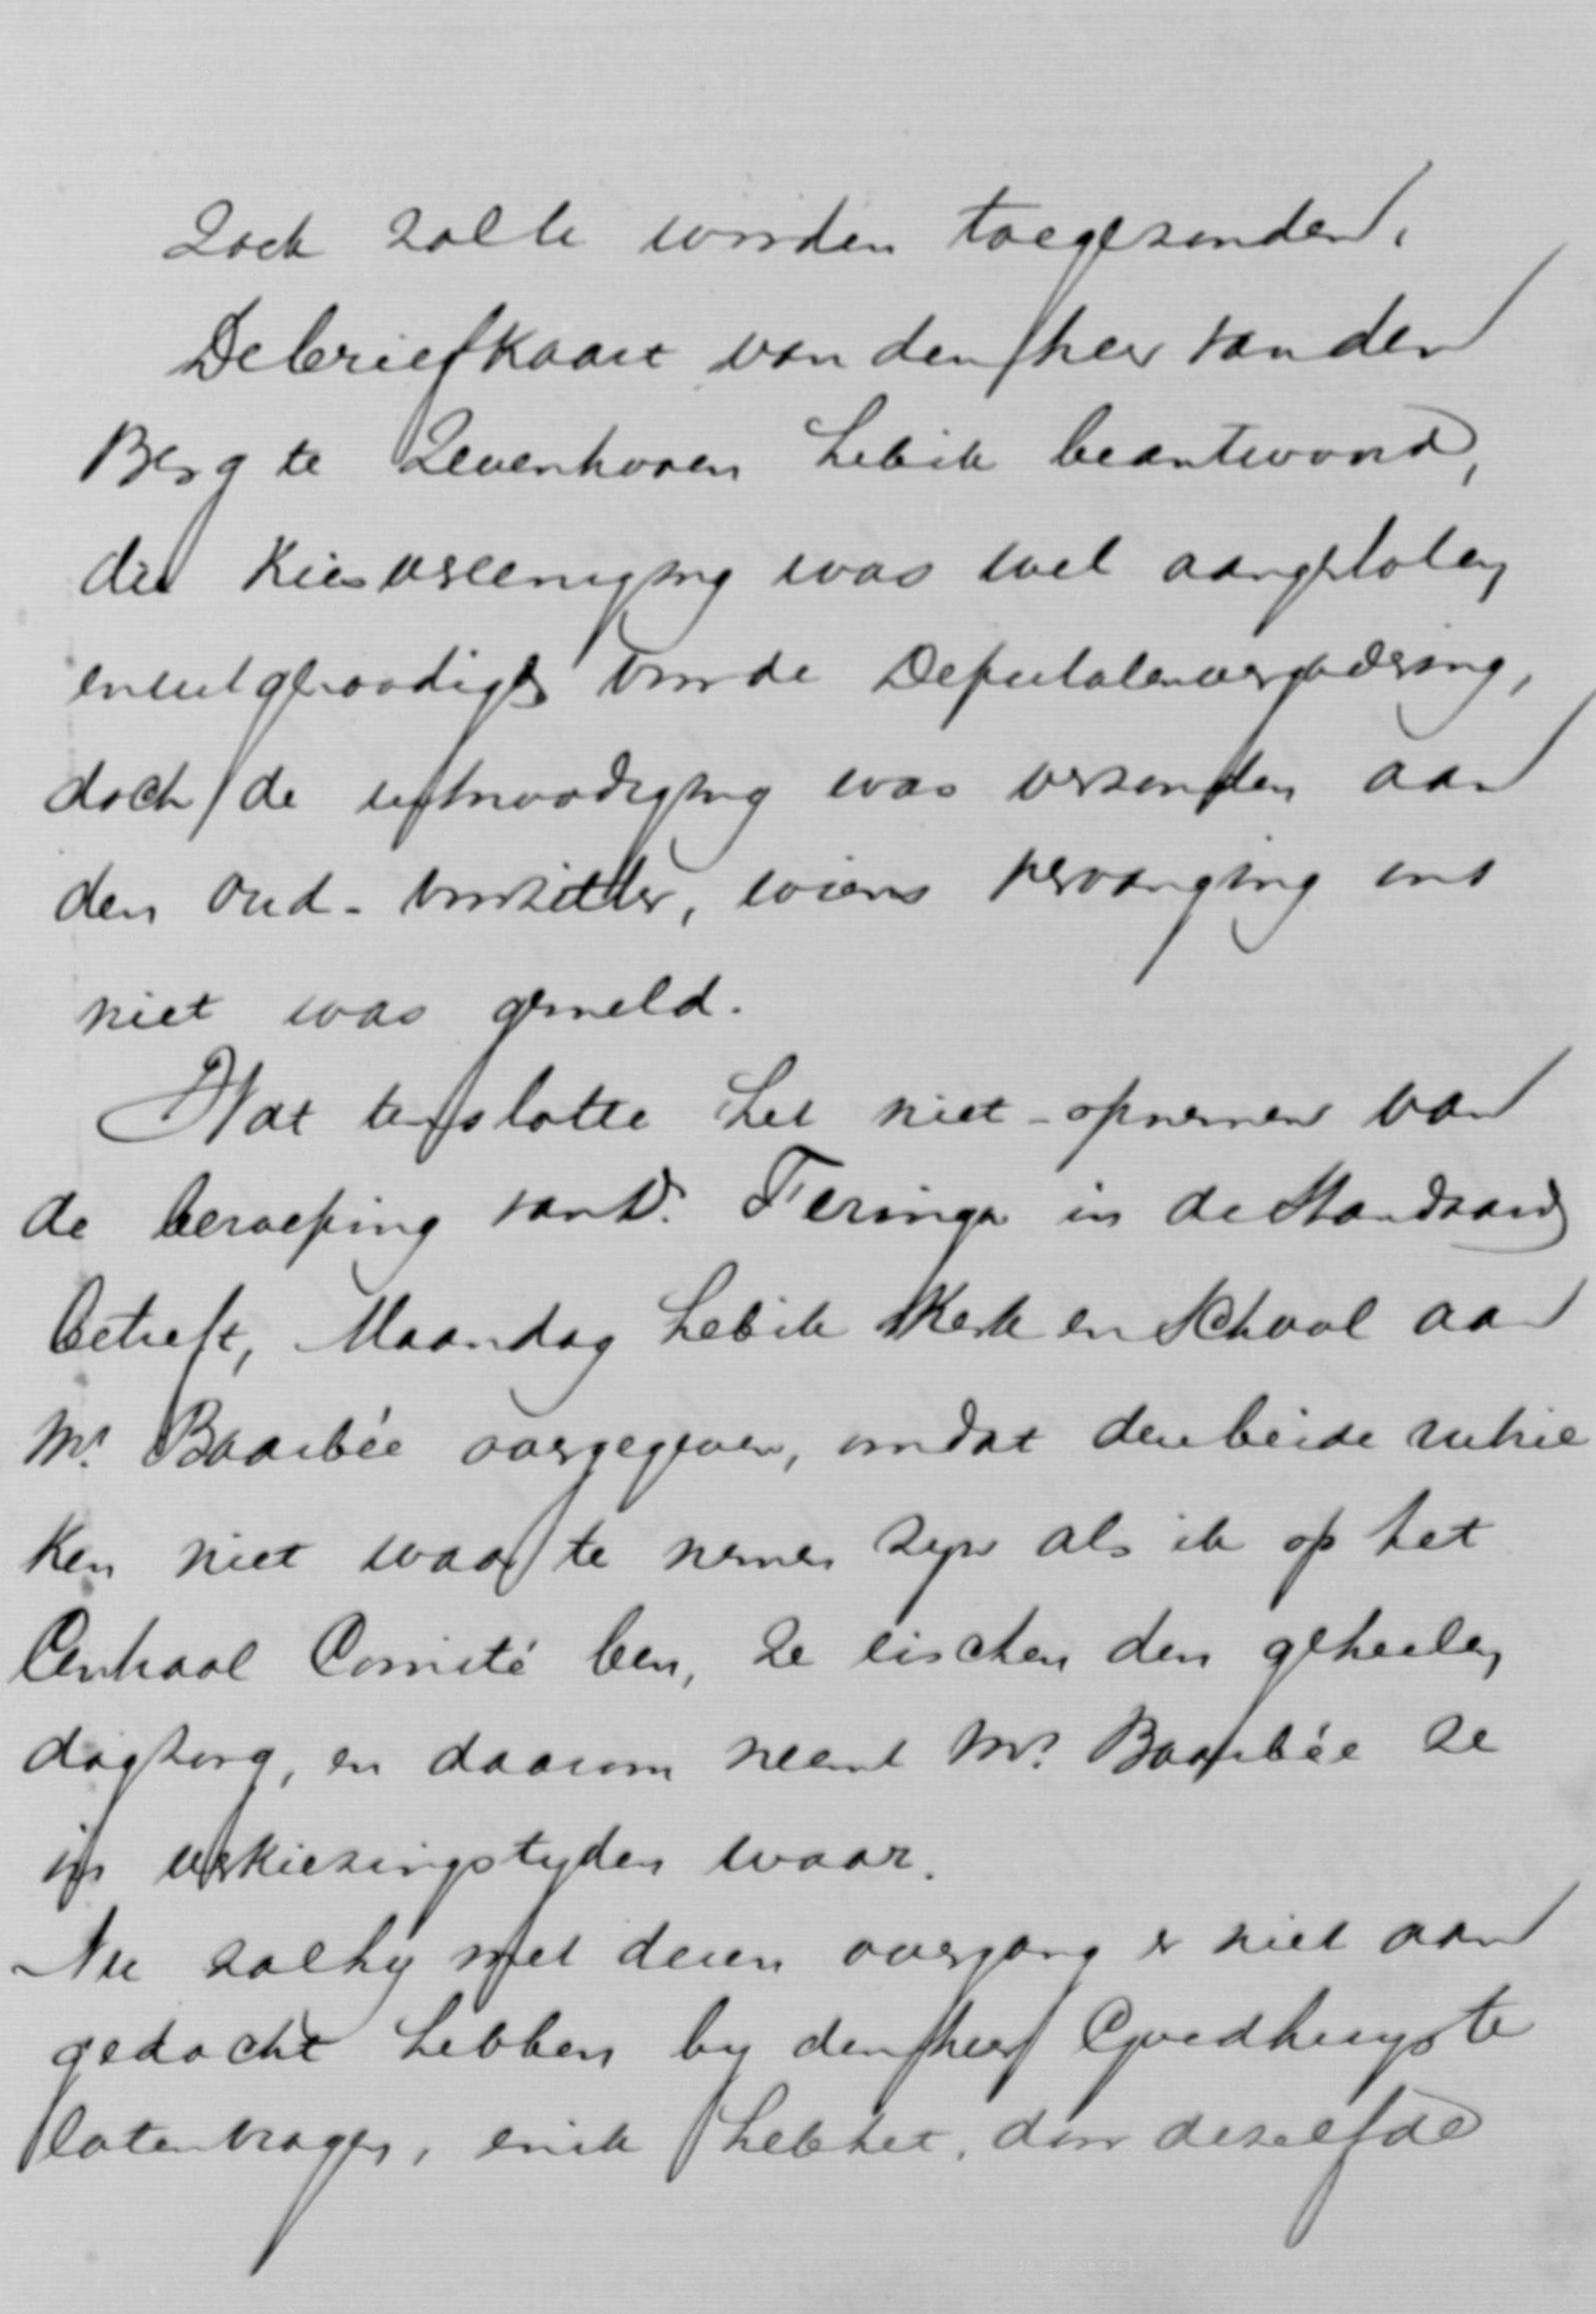 zoek zalle worden toegezonden.
De briefkaart van den heer van den
Berg te Zevenhoven heb ik beantwoord,
die Kiesvereeniging was wel aangesloten
en uitgenoodigd voor de Deputatenvergadering,
doch de uitnoodiging was verzonden aan
den oud-voorzitter, wiens vervanging ons
niet was gemeld.
Wat tenslotte het niet-opnemen van
de beroeping van Ds. Feringa in de Standaard
betreft, Maandag heb ik Kerk en School aan
Mr. Baarbée overgegeven, omdat deze beide rubrie
ken niet waar te nemen zijn als ik op het
Centraal Comité ben, ze eischen den geheelen
dag zorg, en daarom neemt Mr. Baarbée ze
in verkiezingstijden waar.
Nu zal hij met dezen overgang er niet aan
gedacht hebben bij den heer Goedhuys te
laten vragen, en ik heb het, dan dezelfde